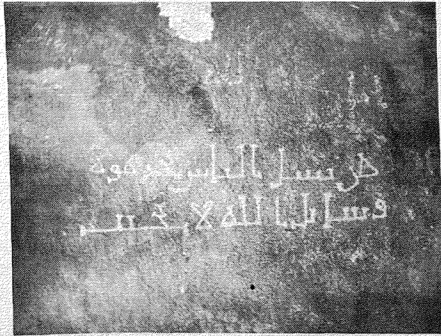 من يسل الناس يحرموه
وسايل الله لا يخيب